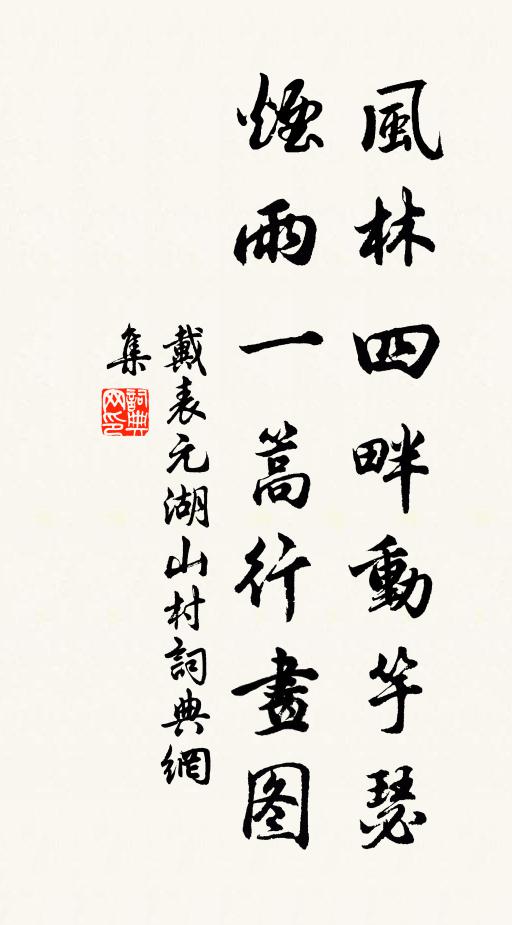 風林四畔動竽瑟
煙雨一篙行畫图
戴表元湖山村詞典網
集
詞典
网印